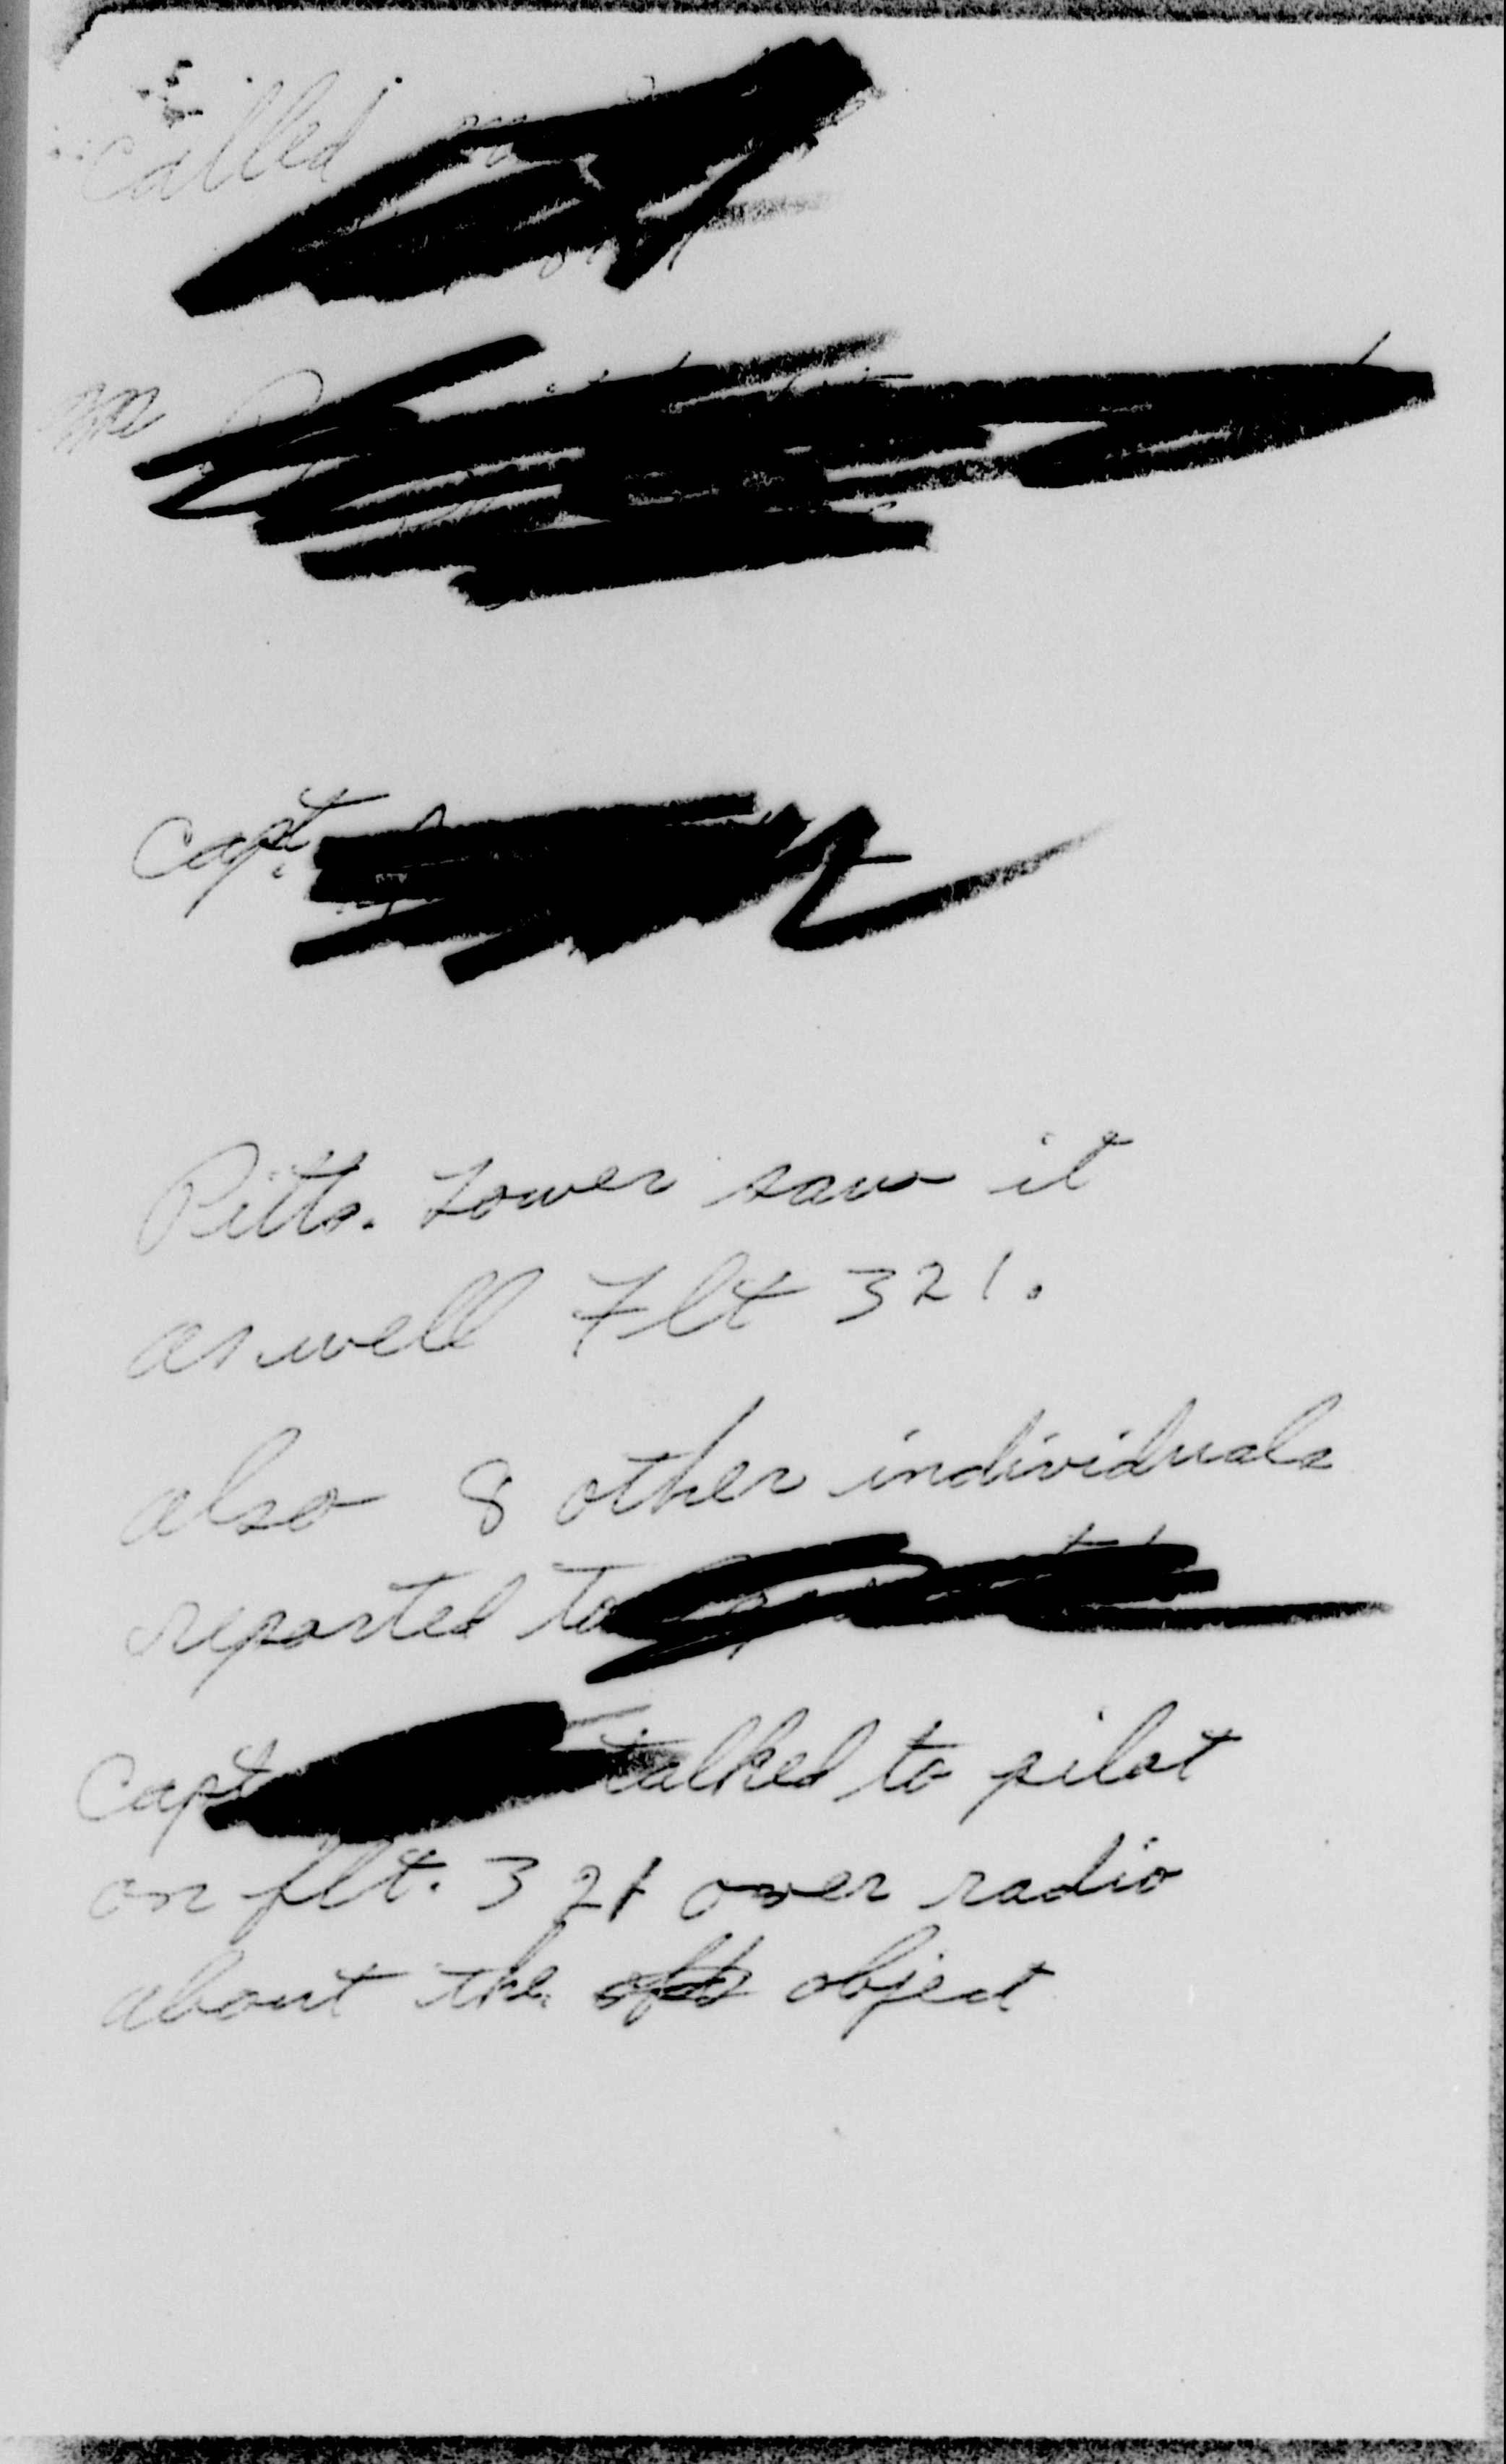 Called
Mr
Capt.
Pitts. Tower saw it
as well Flt 321.
also 8 other individuals
reported to
Capt talked to pilot
on flt. 321 over radio
about the object